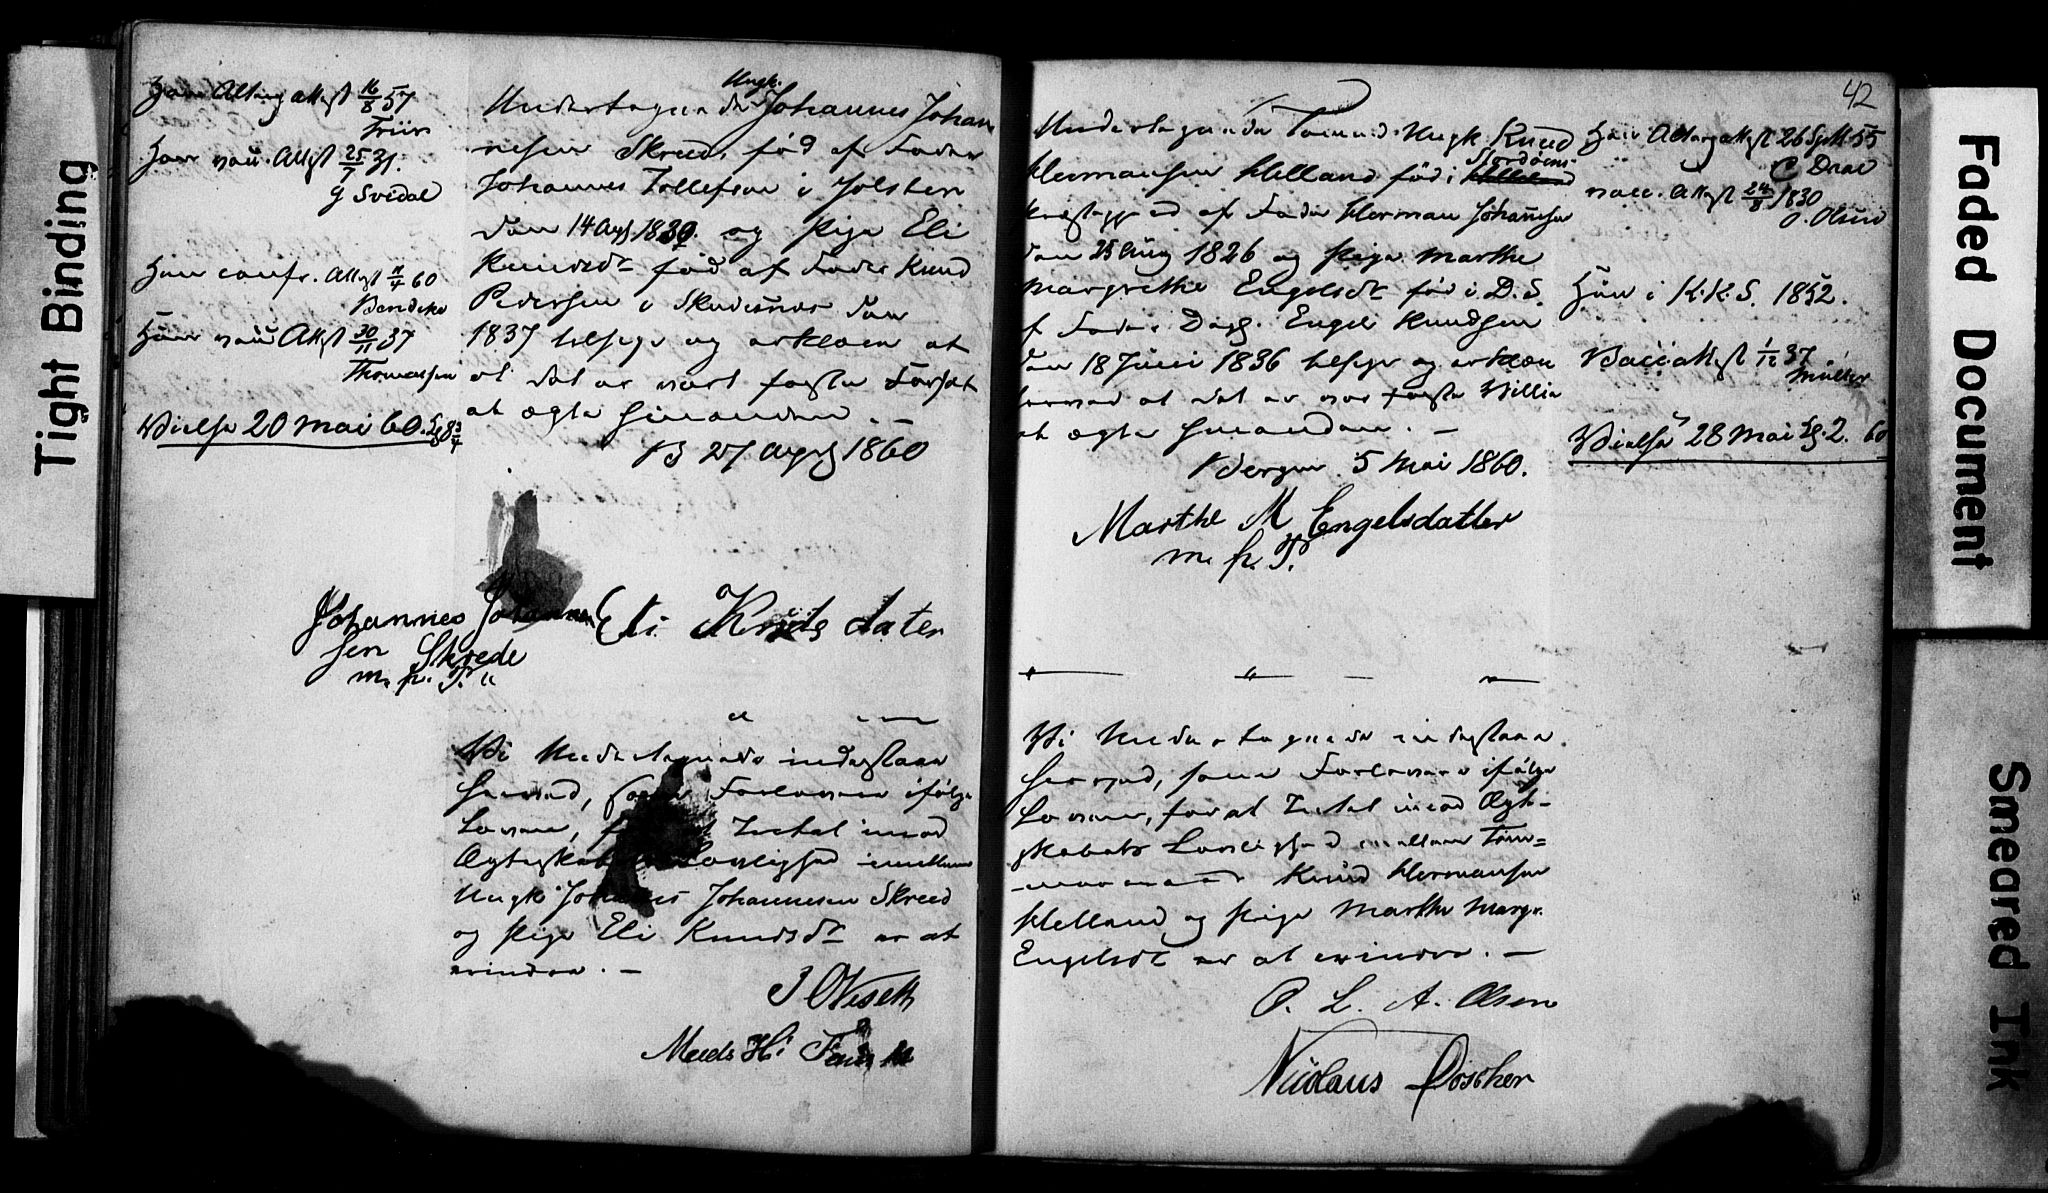 Tight Binding
Han Alterg attest 16/8 57
Friis
Han vacc. Attest 25/7 31.
G Svedal
Hun confr. Attest 11/4 60
Bendeke
Hun vacc Attest 30/11 37
Thomassen
Vielse 20 Mai 60.
Ungk.
Undertegnede Johannes Johan
nesen Skreed, fød af Fader
Johannes Tollefsen i Jølster
den 14 Augst 1830. og Pige Eli
Knudsdt fød af Fader Knud
Pedersen i Skudesnæs den
1837 tilstaar og erklærer at
at det er vort faste Forsæt
at ægte hinanden. —
B 27 1860
Johannes Johannes
sen Skrede
m. p. P.
Eli Knuds dater
Vi Undertegnede indestaar
herved, som Forlovere ifølge
Loven, for at Intet imod
Ægteskabets Lovlighed imellem
Ungk. Johannes Johannesen Skreed
og Pige Eli Knudsdt er at
erindre. —
42
Undertegnede Tømmermd. Ungk Knud
Hermansen Helland fød i
Præstegjeld af Fader Herman Johannesen
den 25 Aug 1826 og Pige Marthe
Margrethe Engelsdt fød i D. S.
af Fader Engel Knudsen
den 18 Juni 1836 tilstaar og erklære
herved at det er vor faste Villie
at ægte hinanden. —
Bergen 5 Mai 1860.
Marthe M Engelsdatter
m. p. P.
Vi Undertegnede indestaae
herved, som Forlovere ifølge
Loven, for at Intet imod Ægte-
skabets Lovlighed mellem Tøm=
mermand Knud Hermansen
Helland og Pige Marthe Margr.
Engelsdt er at erindre. —
O. L. A. Olsen
Nicolaus
Han Alterg attest 26 Sept. 55
vacc. Attest 24/8 1830
O. Olsen
Hun i K. K. S. 1852.
Vacc attest 1/12 37
Müller
Vielse 28 Mai 60
Faded Document
Smeared Ink